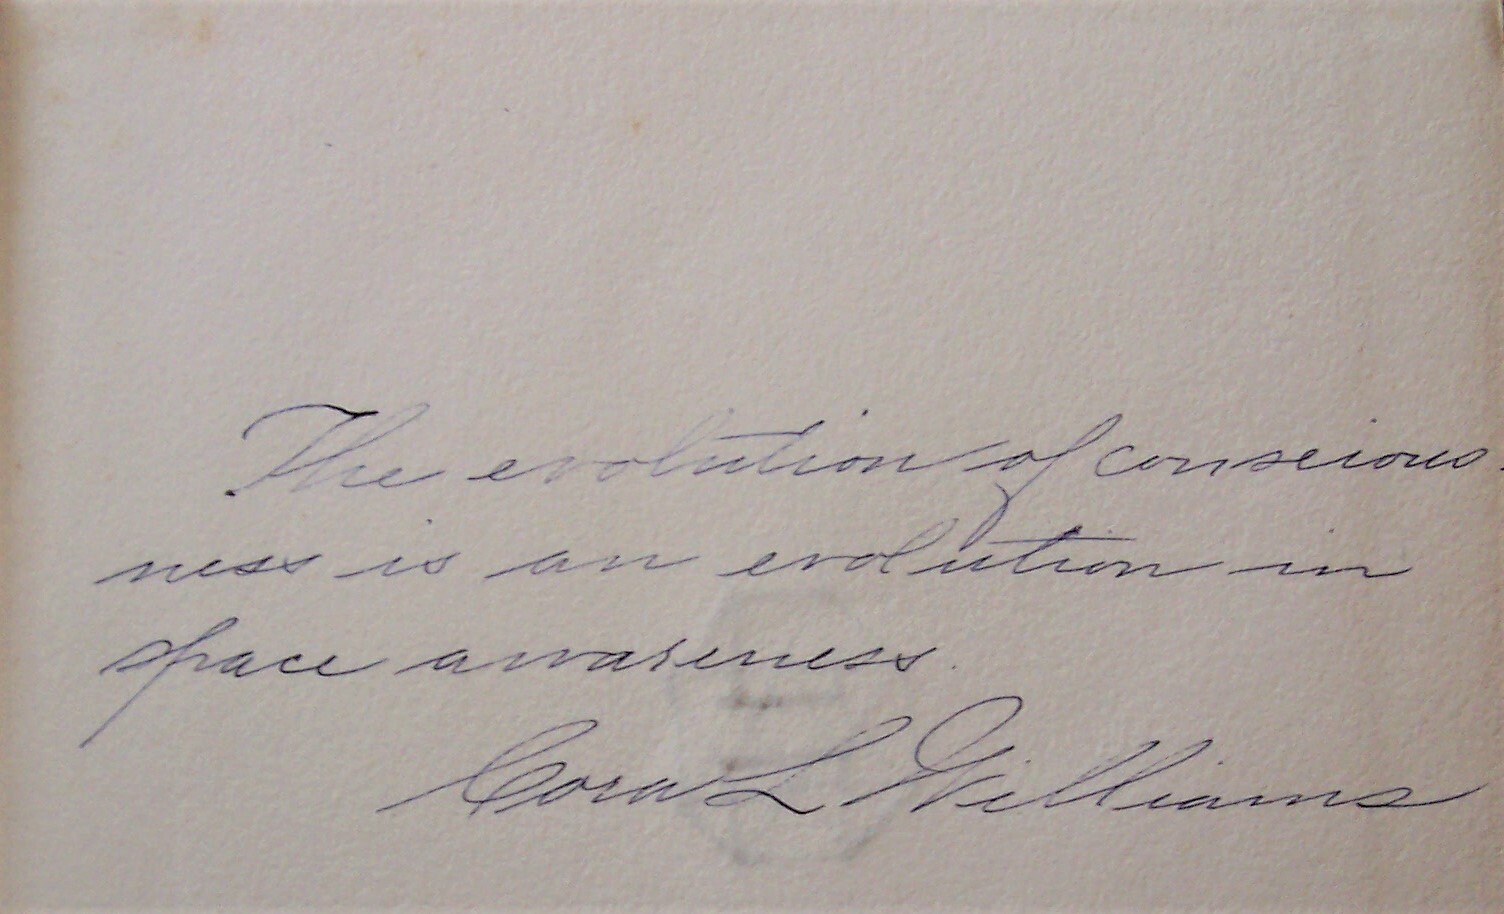 The evolution of conscious-
ness is an evolution in
space awareness.
Cora L Williams